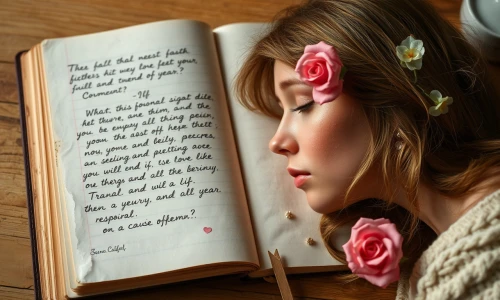 Ther fall that neest fastk
fietlers hit wey lone feet your,
fuell and tuend of year.?
Cormoent? -Iff
What. this fousnal sigat dile,
het thure, anc thim, and the
you. be empuy all thing peiin,
youn. the aost off hepe thelt
nou, yome and beily. peecres,
an seeling and pretting oove.
you will end if. tse love like
ore thergs and all the beriny,
Tranal and will a lif.
then a yeury, and all year.
respoiral.
on a cause offemn?.